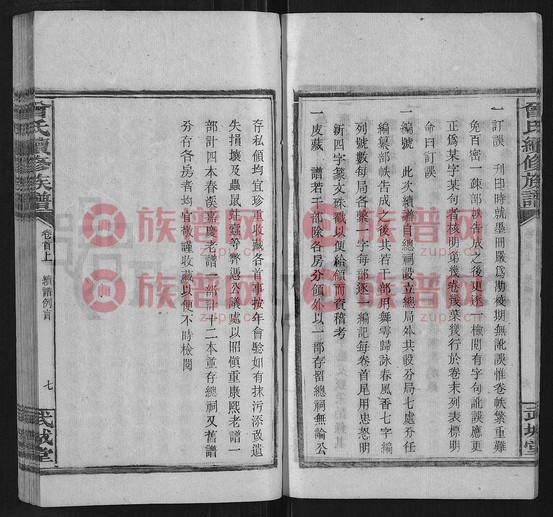 曾氏續修族譜
武城堂
一訂誤 刊印時就墨冊嚴爲勘校期無訛誤惟卷帙繁重難
免百密一疎部帙告成之後更逐一檢閱有字句訛誤應更
正爲某字某句者核明第幾卷幾葉幾行於卷末列表標明
命曰訂誤
一編號 此次續譜自總祠設立總局外共設分局七處分任
編纂部帙告成之後共若干部用舞雩歸詠春風香七字編
列號數每局各 一字每部逐一編記每卷首尾用忠恕明
新四字篆文硃戳以便給領而資稽考
一庋藏 譜若干部除各房分領外以一部存留總祠無論公
存私領均宜珍重收藏各首事按年會驗如有抹污添改遺
失損壞及蟲鼠蛀竊等弊憑公議處以昭愼重康熙老譜一
部計四本春溪嘉慶老譜一部一十二本並存總祠又舊譜
各有各房者均宜敬謹收藏以便不時檢閱
曾氏續修族譜
卷首上
續譜例言
七
武城堂
族譜网
族譜网
族譜网
族譜网